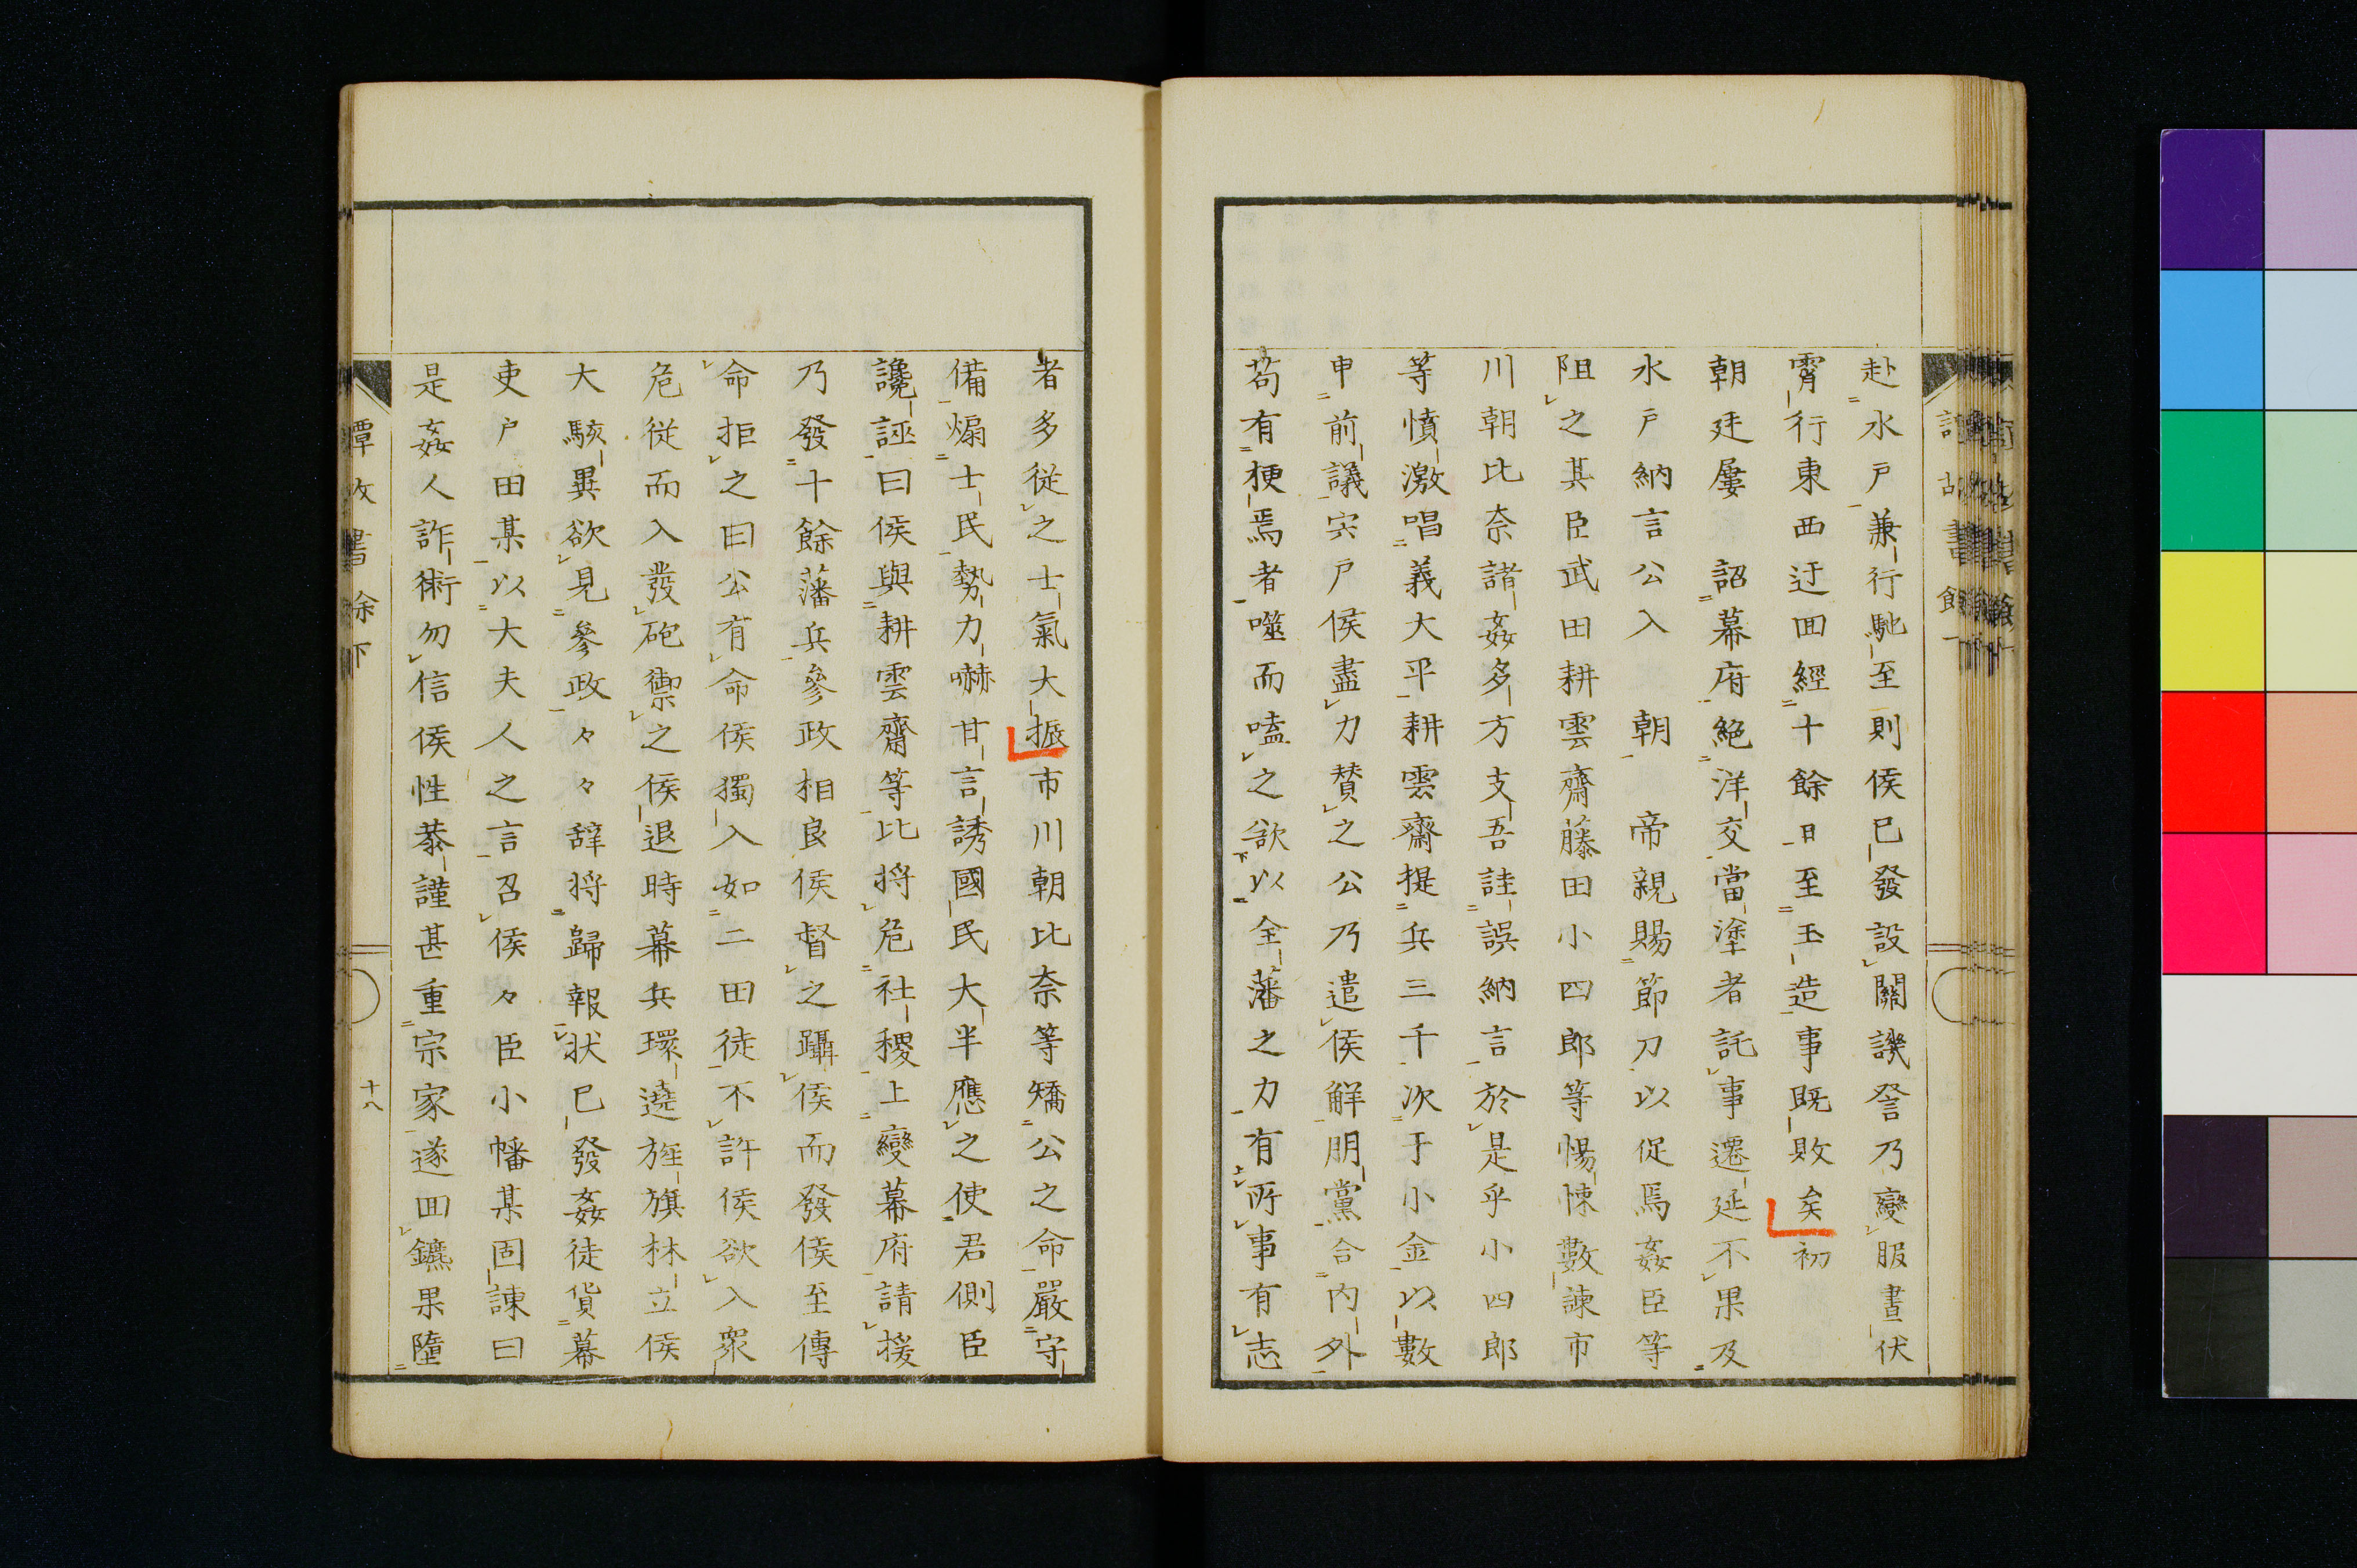 赴水戸兼行馳至則侯已發設關譏詧乃變服晝伏
霄行東西迂囬經十餘日至玉造事既敗矣初
朝廷屢　詔幕府絕洋交當塗者託事遷延不果及
水戸納言公入　朝　帝親賜節刀以促焉姦臣等
阻之其臣武田耕雲齋藤田小四郎等惕悚數諫市
川朝比奈諸姦多方支吾詿誤納言於是乎小四郎
等憤激唱義大平耕雲齋提兵三千次于小金以數
申前議宍戸侯盡力賛之公乃遣侯觧朋黨合內外
苟有梗焉者噬而嗑之欲以全藩之力有所事有志
者多從之士氣大振市川朝比奈等矯公之命嚴守
備煽士民勢力嚇甘言誘國民大半應之使君側臣
讒誣曰侯與耕雲齋等比將危社稷上變幕府請援
乃發十餘藩兵參政相良侯督之躡侯而發侯至傳
命拒之曰公有命侯獨入如二田徒不許侯欲入衆
危從而入發砲禦之侯退時幕兵環遶旌旗林立侯
大駭異欲見參政々々辞將歸報状已發姦徒貨幕
吏戸田某以大夫人之言召侯々臣小幡某固諫曰
是姦人詐術勿信侯性恭謹甚重宗家遂囬鑣果墮
十八